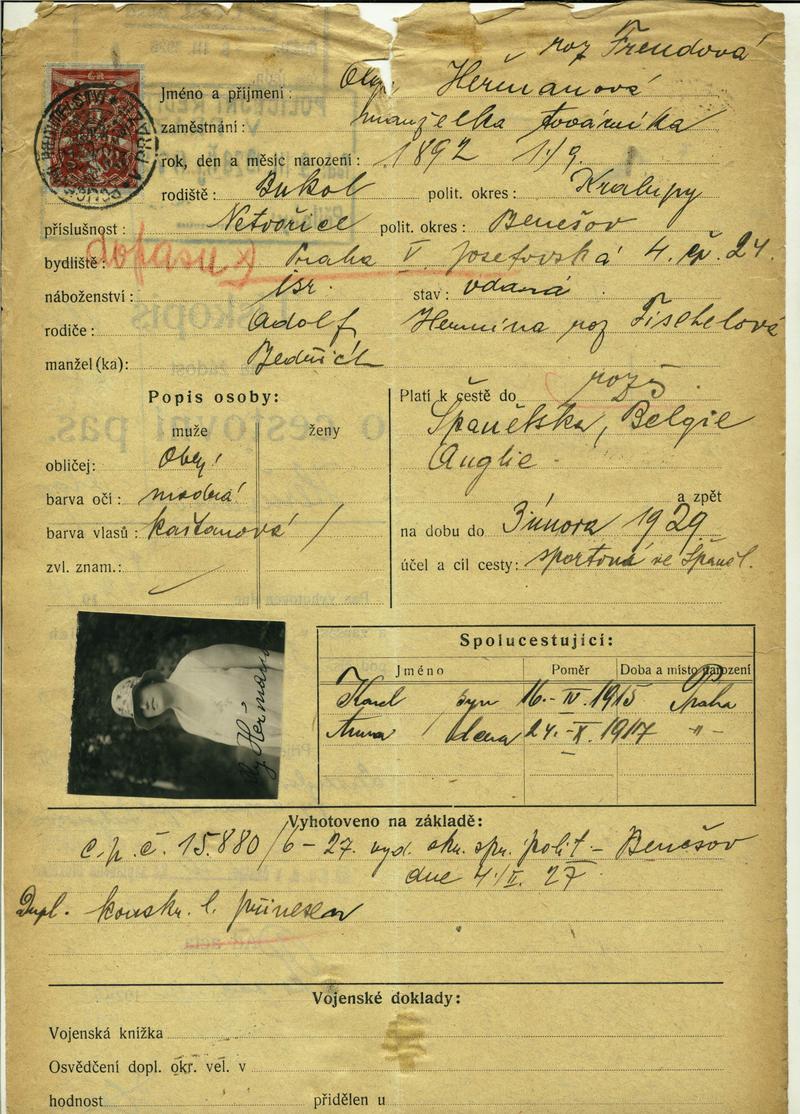 roz Freudová
Jméno a přijmení: Olga Heřmanová
zaměstnání: manželka továrníka
rok, den a měsíc narození: 1892 1/9.
rodiště: Bukol polit. okres: Kralupy
příslušnost: Netvořice polit. okres: Benešov
dopasu
bydliště: Praha V. Josefovská 4. čp. 24.
náboženství: isr. stav: vdaná
rodiče: Adolf, Hermina roz Fischelová
manžel(ka): Bedřich
Popis osoby:
muže ženy
obličej:
barva očí: modrá
barva vlasů: kaštanová /
zvl. znam.:
Platí k cestě do rozš
Španělska, Belgie
Anglie
a zpět
na dobu do 3 února 1929
účel a cíl cesty: sportovní ve Španěl.
Hermann
Spolucestující:
Jméno Poměr Doba a místo narození
Karel syn 16.-IV. 1915 Praha
Anna dcera 24.-X. 1917 -"-
Vyhotoveno na základě:
c. p. č. 15.880/6-27. vyd. okr. spr. polit - Benešov
dne 4./II. 27
Dupl. konskr. l. přinesen
Vojenské doklady:
Vojenská knížka
Osvědčení dopl. okr. vel. v
hodnost přidělen u